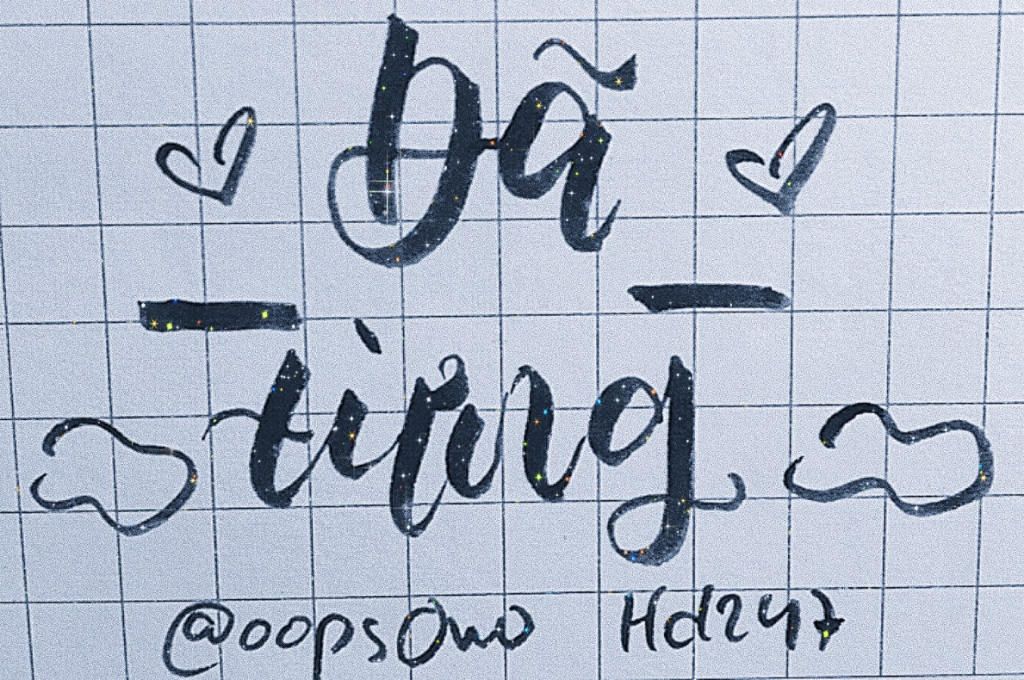 Đã
từng
@oopsOwo Hd247